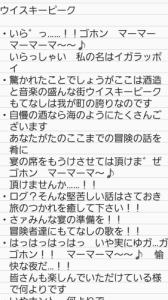 ウイスキーピーク
・いら゛っ……！！ゴホン　マーマー
マーマーマ〜〜♪
いらっしゃい　私の名はイガラッポイ
・驚かれたことでしょうがここは酒造
と音楽の盛んな街ウイスキーピーク
もてなしは我が町の誇りなのです
・自慢の酒なら海のようにたくさんご
ざいます
あなたがたのここまでの冒険の話を
肴に
宴の席をもうけさせては頂けま゛ぜ
ゴホン　マーマーマ〜〜♪
頂けませんか……！！
・ログ？そんな堅苦しい話はさておき
旅のつかれを癒して下さい！！
・さァみんな宴の準備を！！
冒険者達にもてなしの歌を！！
・はっはっはっはっ　いや実にゆガ…ガ
ゴホン！！　マーマーマ〜♪　愉
快な夜だ…！！
皆さんも楽しんでいただけている様
で何よりです